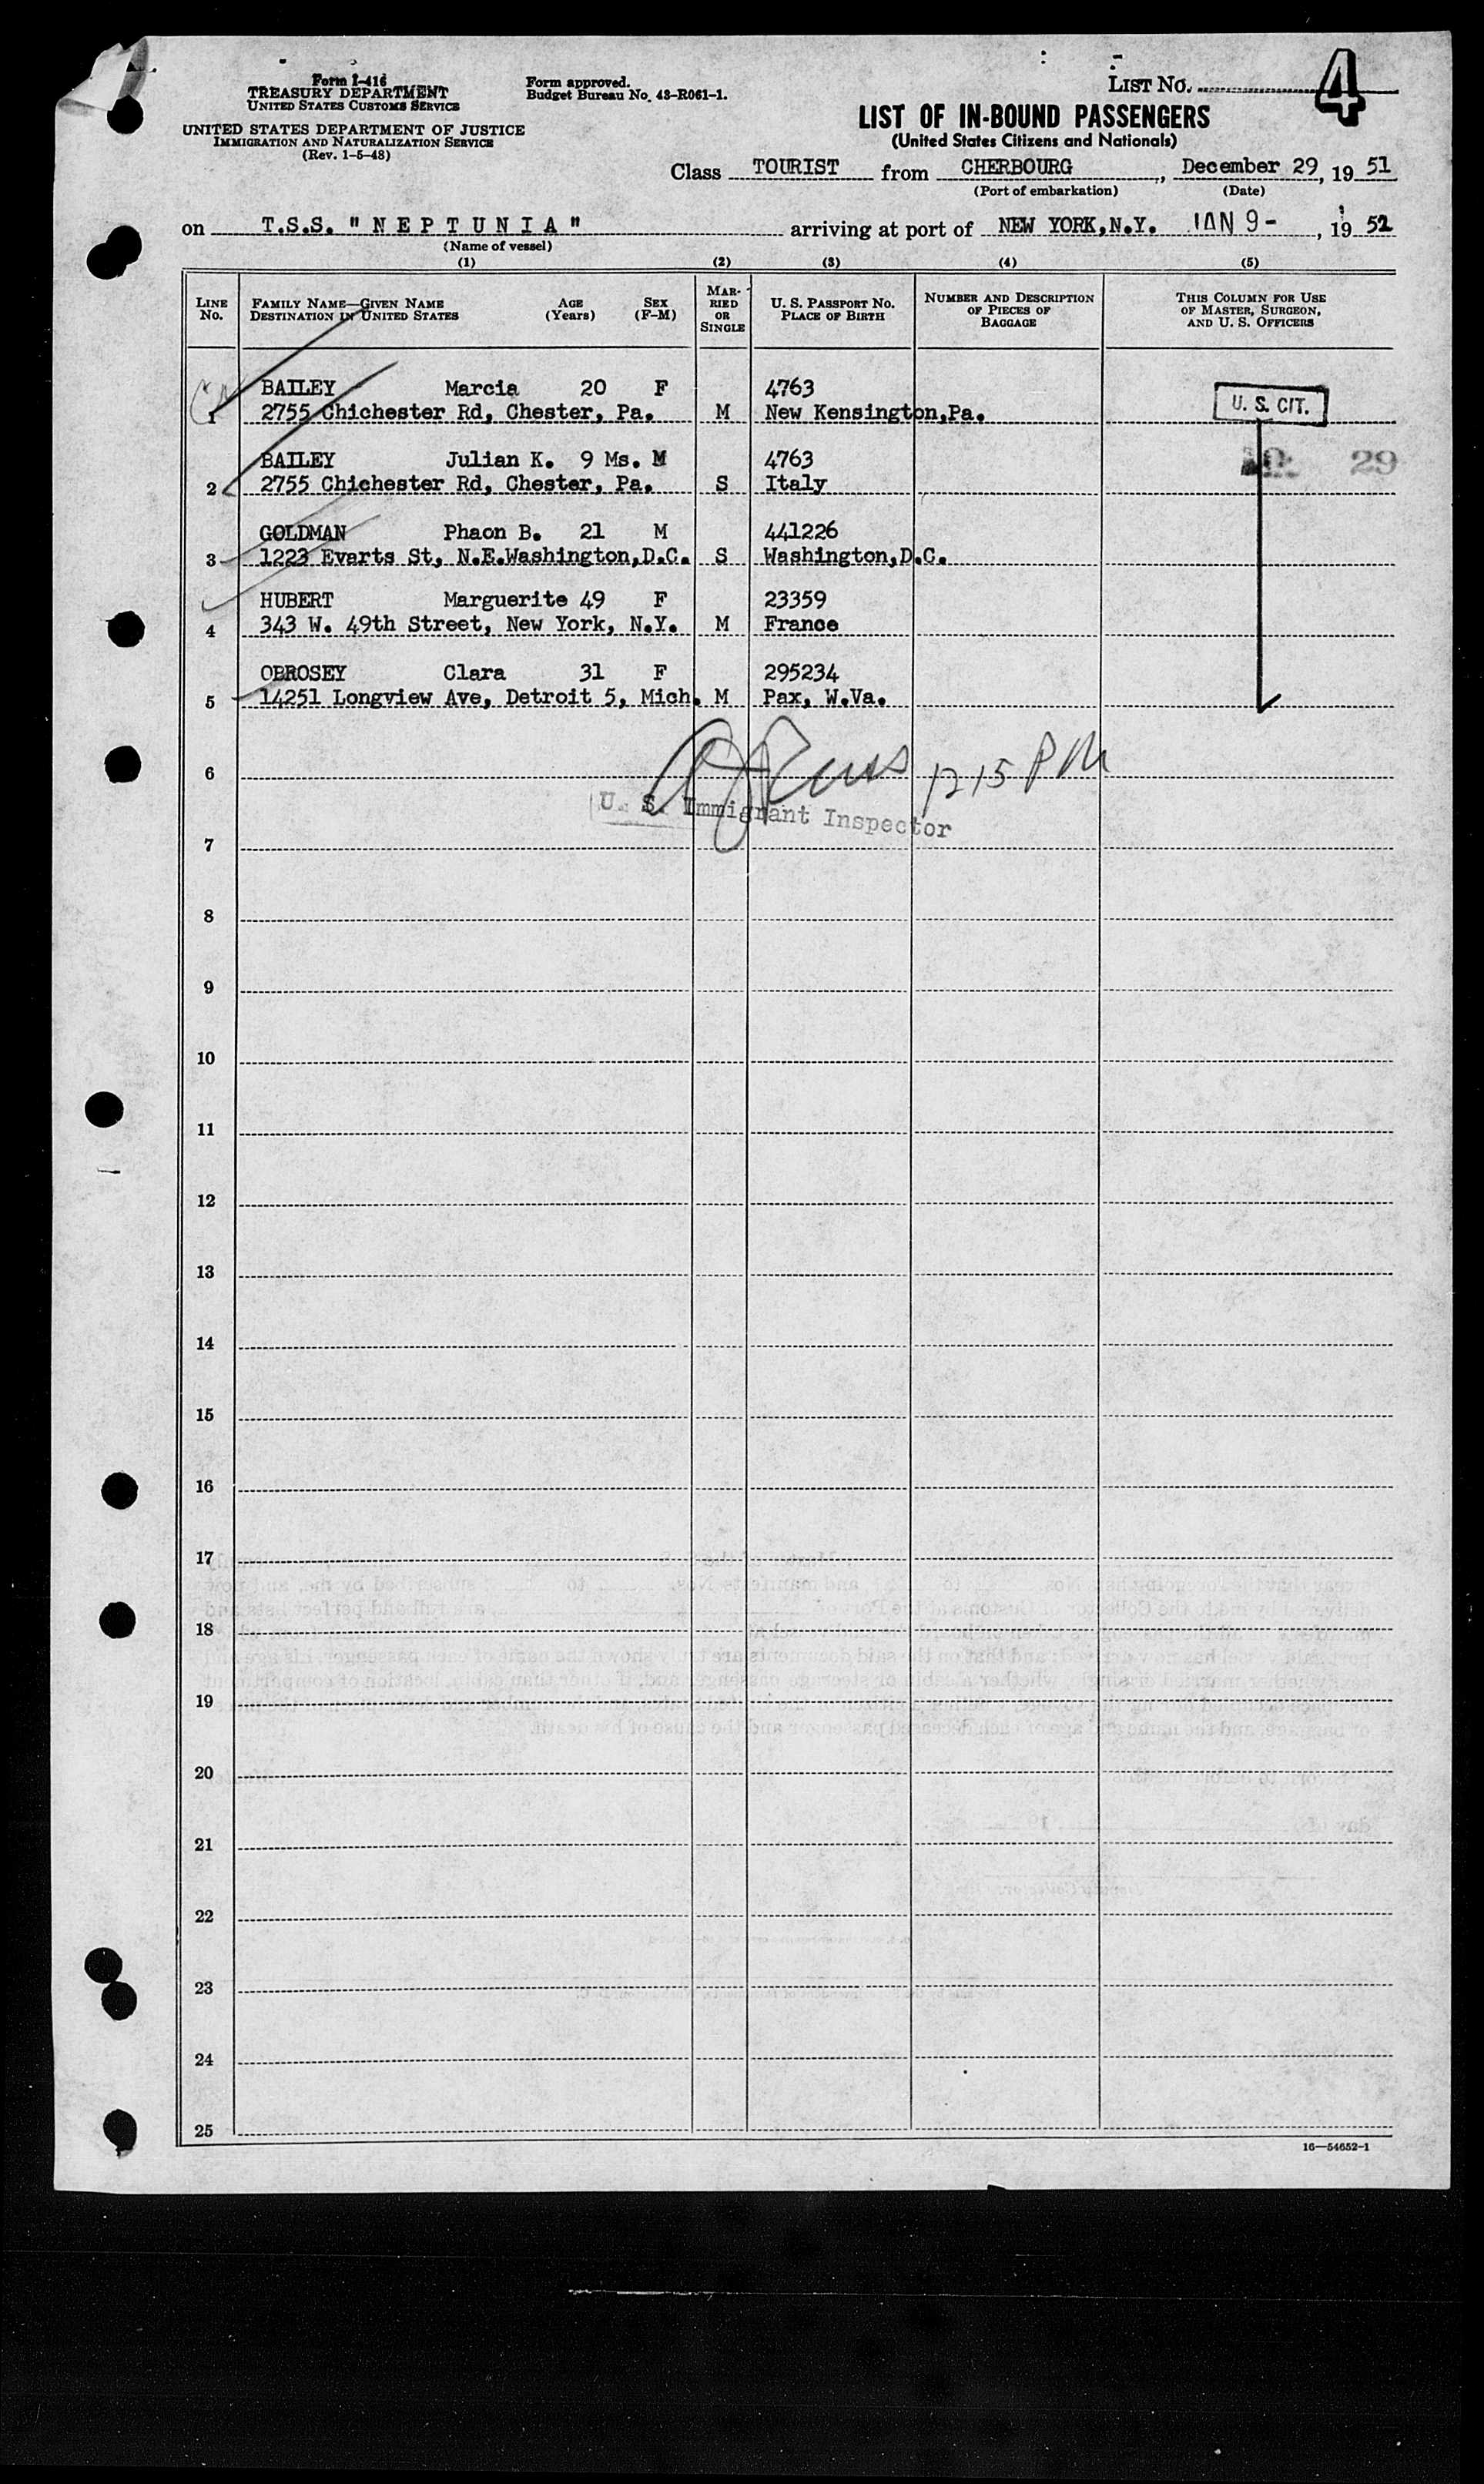 Form I-416
TREASURY DEPARTMENT
UNITED STATES CUSTOMS SERVICE
UNITED STATES DEPARTMENT OF JUSTICE
IMMIGRATION AND NATURALIZATION SERVICE
(Rev. 1-5-48)
Form approved.
Budget Bureau No. 43-R061-1.
LIST No. 4
LIST OF IN-BOUND PASSENGERS
(United States Citizens and Nationals)
Class TOURIST from CHERBOURG, December 29, 19 51
(Port of embarkation) (Date)
on T.S.S. "NEPTUNIA" arriving at port of NEW YORK,N.Y. JAN 9-, 19 52
(Name of vessel)
(1) (2) (3) (4) (5)
LINE No.
FAMILY NAME—GIVEN NAME AGE SEX
DESTINATION IN UNITED STATES (Years) (F-M)
MARRIED OR SINGLE
U. S. PASSPORT No.
PLACE OF BIRTH
NUMBER AND DESCRIPTION OF PIECES OF BAGGAGE
THIS COLUMN FOR USE OF MASTER, SURGEON, AND U. S. OFFICERS
BAILEY Marcia 20 F 4763
1 2755 Chichester Rd, Chester, Pa. M New Kensington,Pa. U. S. CIT.
BAILEY Julian K. 9 Ms. M 4763 29
2 2755 Chichester Rd, Chester, Pa. S Italy
GOLDMAN Phaon B. 21 M 441226
3 1223 Evarts St, N.E.Washington,D.C. S Washington,D.C.
HUBERT Marguerite 49 F 23359
4 343 W. 49th Street, New York, N.Y. M France
OBROSEY Clara 31 F 295234
5 14251 Longview Ave, Detroit 5, Mich. M Pax, W.Va.
6 1215 PM
U. S. Immigrant Inspector
7
8
9
10
11
12
13
14
15
16
17
18
19
20
21
22
23
24
25
16—54652-1